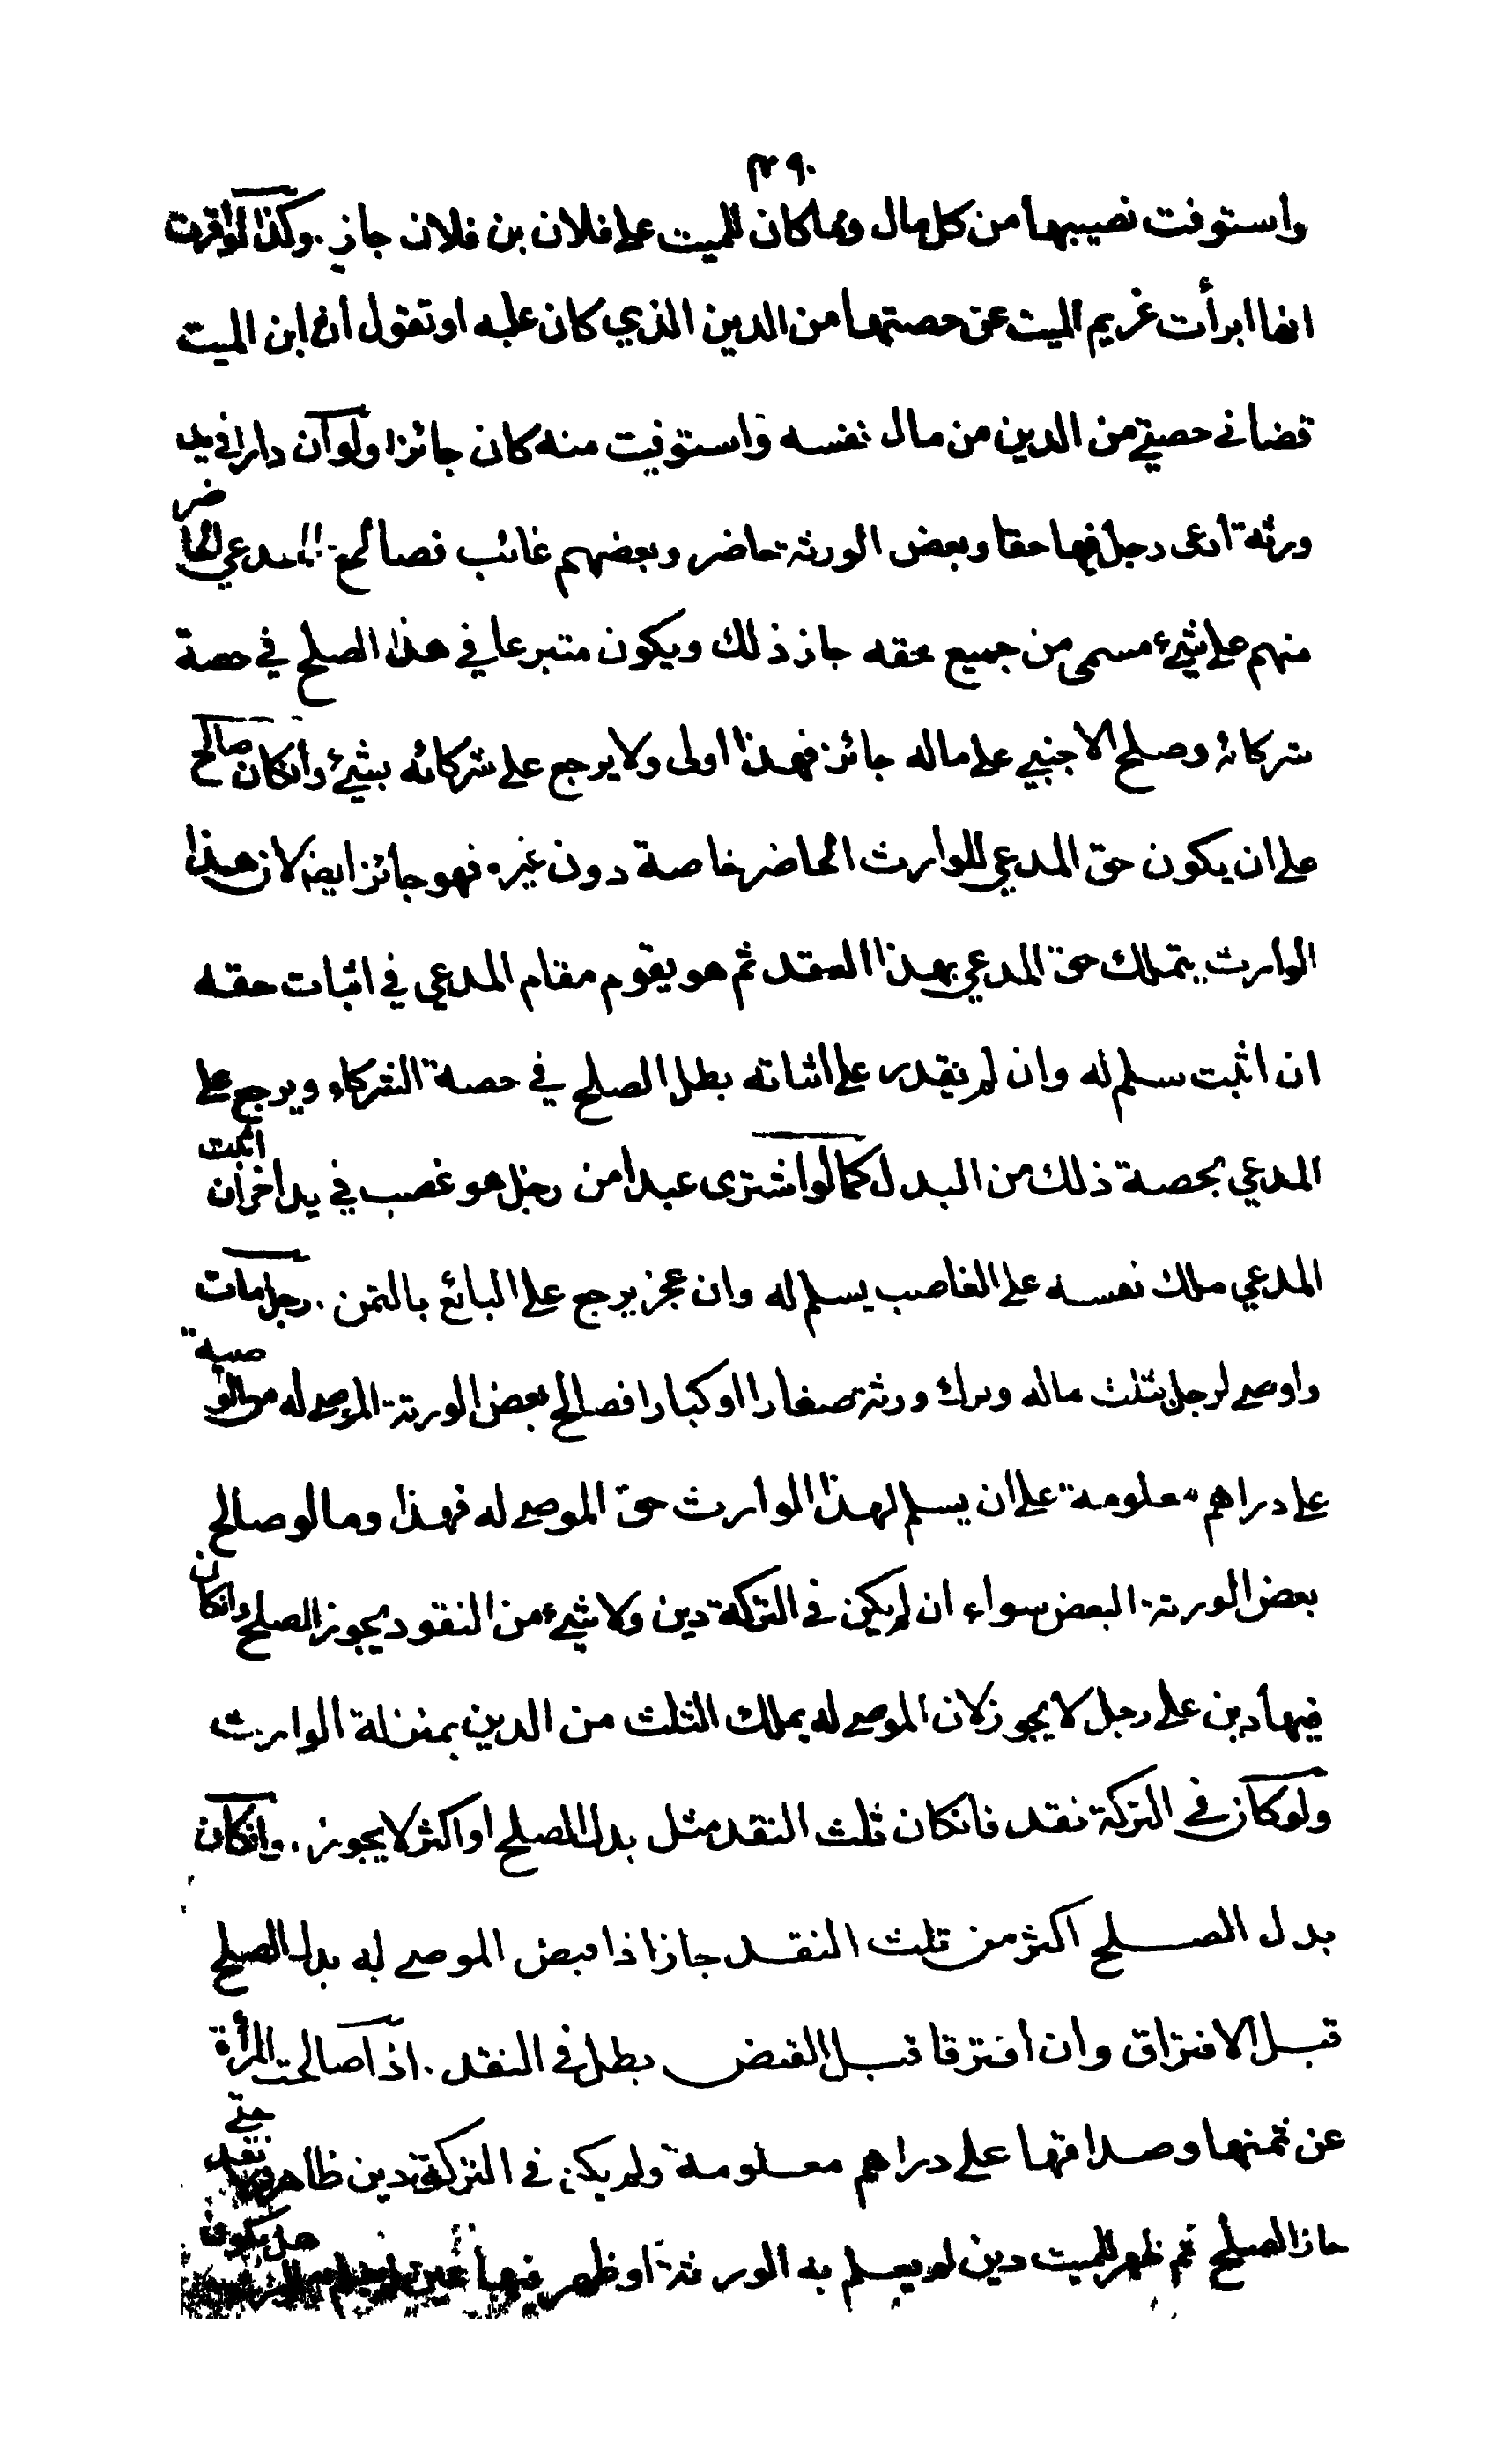 ٢٩٠
واستوفت نصيبها من كل مال ومما كان للميت على فلان بن فلان جاز. وكذا لو اقرت
انها ابرأت غريم الميت عن حصتها من الدين الذي كان عليه او تقول ان ابن الميت
قضاني حصتي من الدين من مال نفسه واستوفيت منه كان جائزا ولو ان دارا في يد
ورثة ادعى رجل فيها حقا وبعض الورثة حاضر وبعضهم غائب فصالح المدعي الحاضر
منهم على شيء مسمى من جميع حقه جاز ذلك ويكون متبرعا في هذا الصلح في حصة
شركائه وصلح الاجنبي على ماله جائز فهذا اولى ولا يرجع على شركائه بشيء وانكان صالح
على ان يكون حق المدعي للوارث الحاضر خاصة دون غيره فهو جائز ايضا لان هذا
الوارث يتملك حق المدعي بهذا العقد ثم هو يقوم مقام المدعي في اثبات حقه
ان اثبت سلم له وان لم يقدر على اثباته بطل الصلح في حصة الشركاء ويرجع على
المدعي بحصة ذلك من البدل كما لو اشترى عبدا من رجل هو غصب في يد اخر ان اثبت
المدعي ملك نفسه على الغاصب يسلم له وان عجز يرجع على البائع بالثمن. رجل مات
واوصى لرجل بثلث ماله وترك ورثة صغارا او كبارا فصالح بعض الورثة الموصى له من الوصية
على دراهم معلومة على ان يسلم لهذا الوارث حق الموصى له فهذا وما لو صالح
بعض الورثة البعض سواء ان لم يكن في التركة دين ولا شيء من النقود يجوز الصلح وانكان
فيها دين على رجل لا يجوز لان الموصى له يملك الثلث من الدين بمنزلة الوارث
ولو كان في التركة نقد فانكان ثلث النقد مثل بدل الصلح او اكثر لا يجوز. وانكان
بدل الصلح اكثر من ثلث النقد جاز اذا قبض الموصى له بدل الصلح
قبل الافتراق وان افترقا قبل القبض بطل في النقد. اذا صالحت المرأة
عن ثمنها وصداقها على دراهم معلومة ولم يكن في التركة دين ظاهر ونقد حتى
جاز الصلح ثم ظهر للميت دين لم يعلم به الورثة او ظهر فيها عين هل يكون